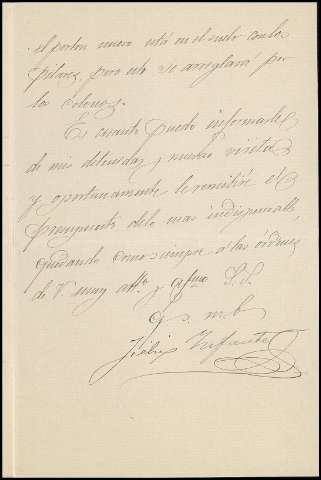 el porton nuevo está en el suelo con los
pilares, pero esto se arreglará por
los colonos.
Es cuanto puedo informarle
de mis detenidas y muchas visitas
y oportunamente le remitiré el
presupuesto delo mas indispensable,
quedando como siempre a las órdenes
de V. muy atto y afmo S.S.
q. s. m. b.
Félix Infante